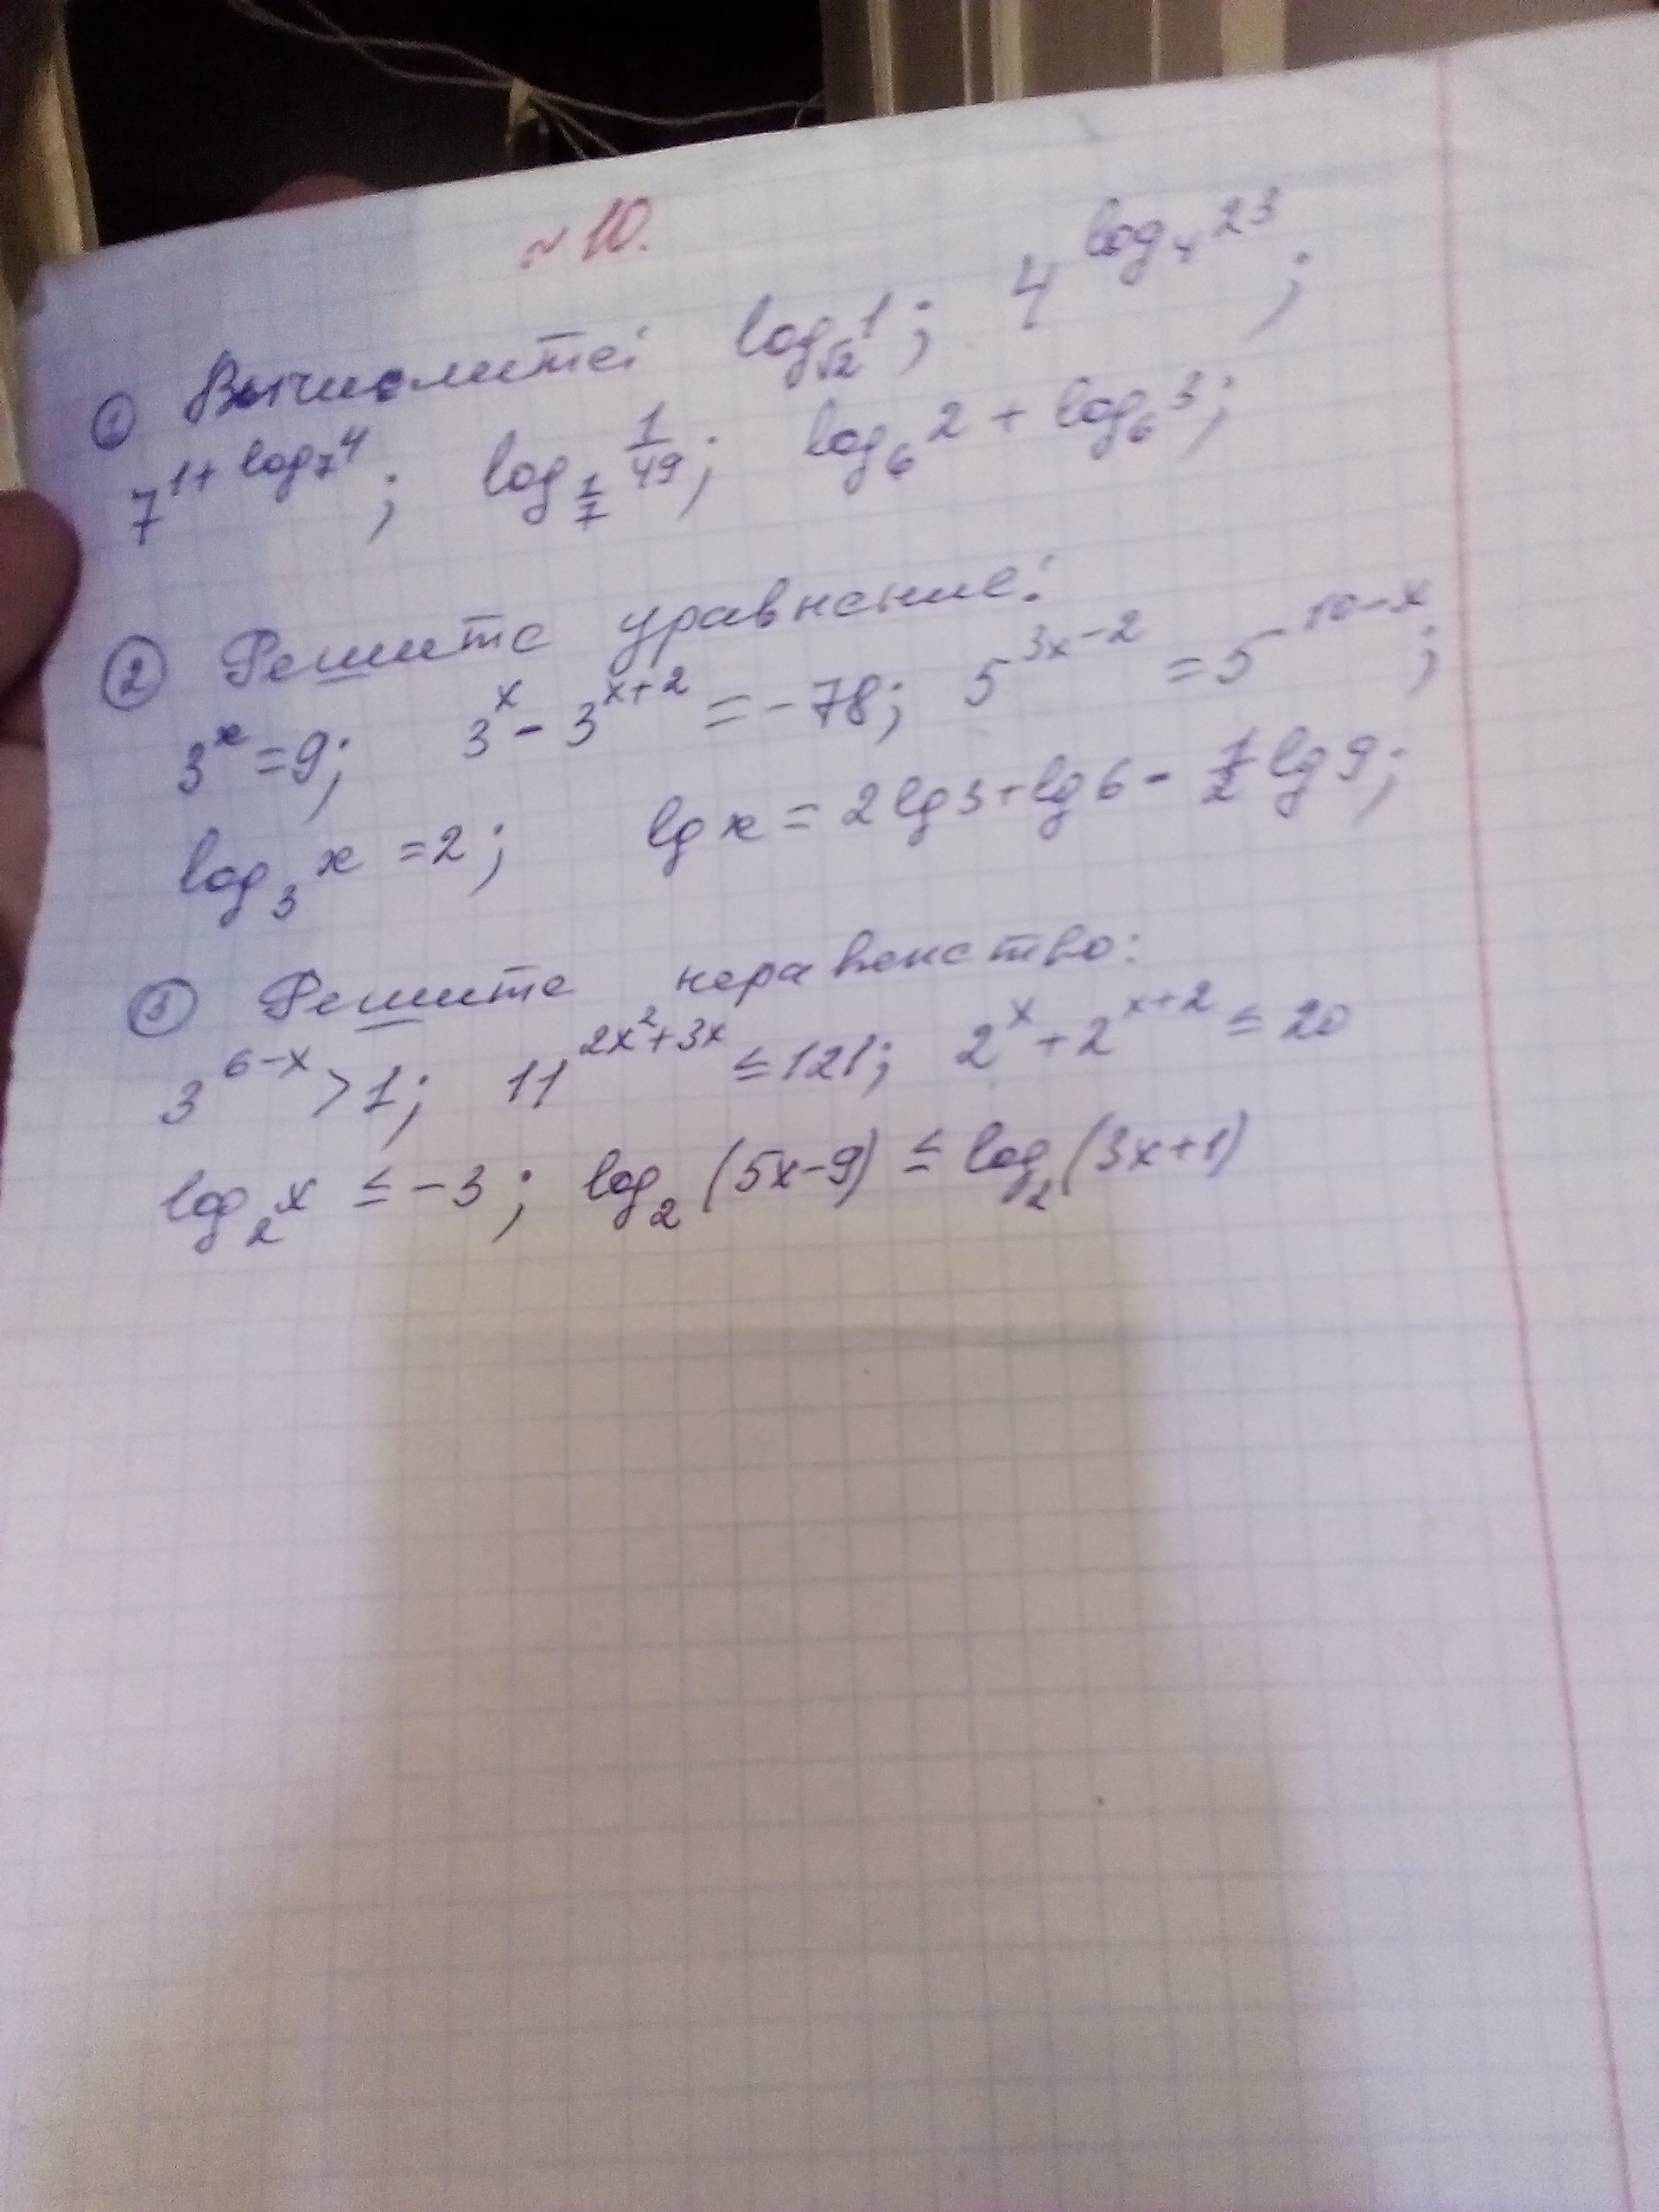 ~ 10.
① Вычислите: log_√2 1; 4^(log_4 23);
7^(1+log_7 4); log_(1/7) 1/49; log_6 2 + log_6 3;
② Решите уравнение:
3^x = 9; 3^x - 3^(x+2) = -78; 5^(3x-2) = 5^(10-x);
log_3 x = 2; lg x = 2 lg 3 + lg 6 - 1/2 lg 9;
③ Решите неравенство:
3^(6-x) > 1; 11^(2x²+3x) ≤ 121; 2^x + 2^(x+2) ≤ 20
log_2 x ≤ -3; log_2 (5x-9) ≤ log_2 (3x+1)